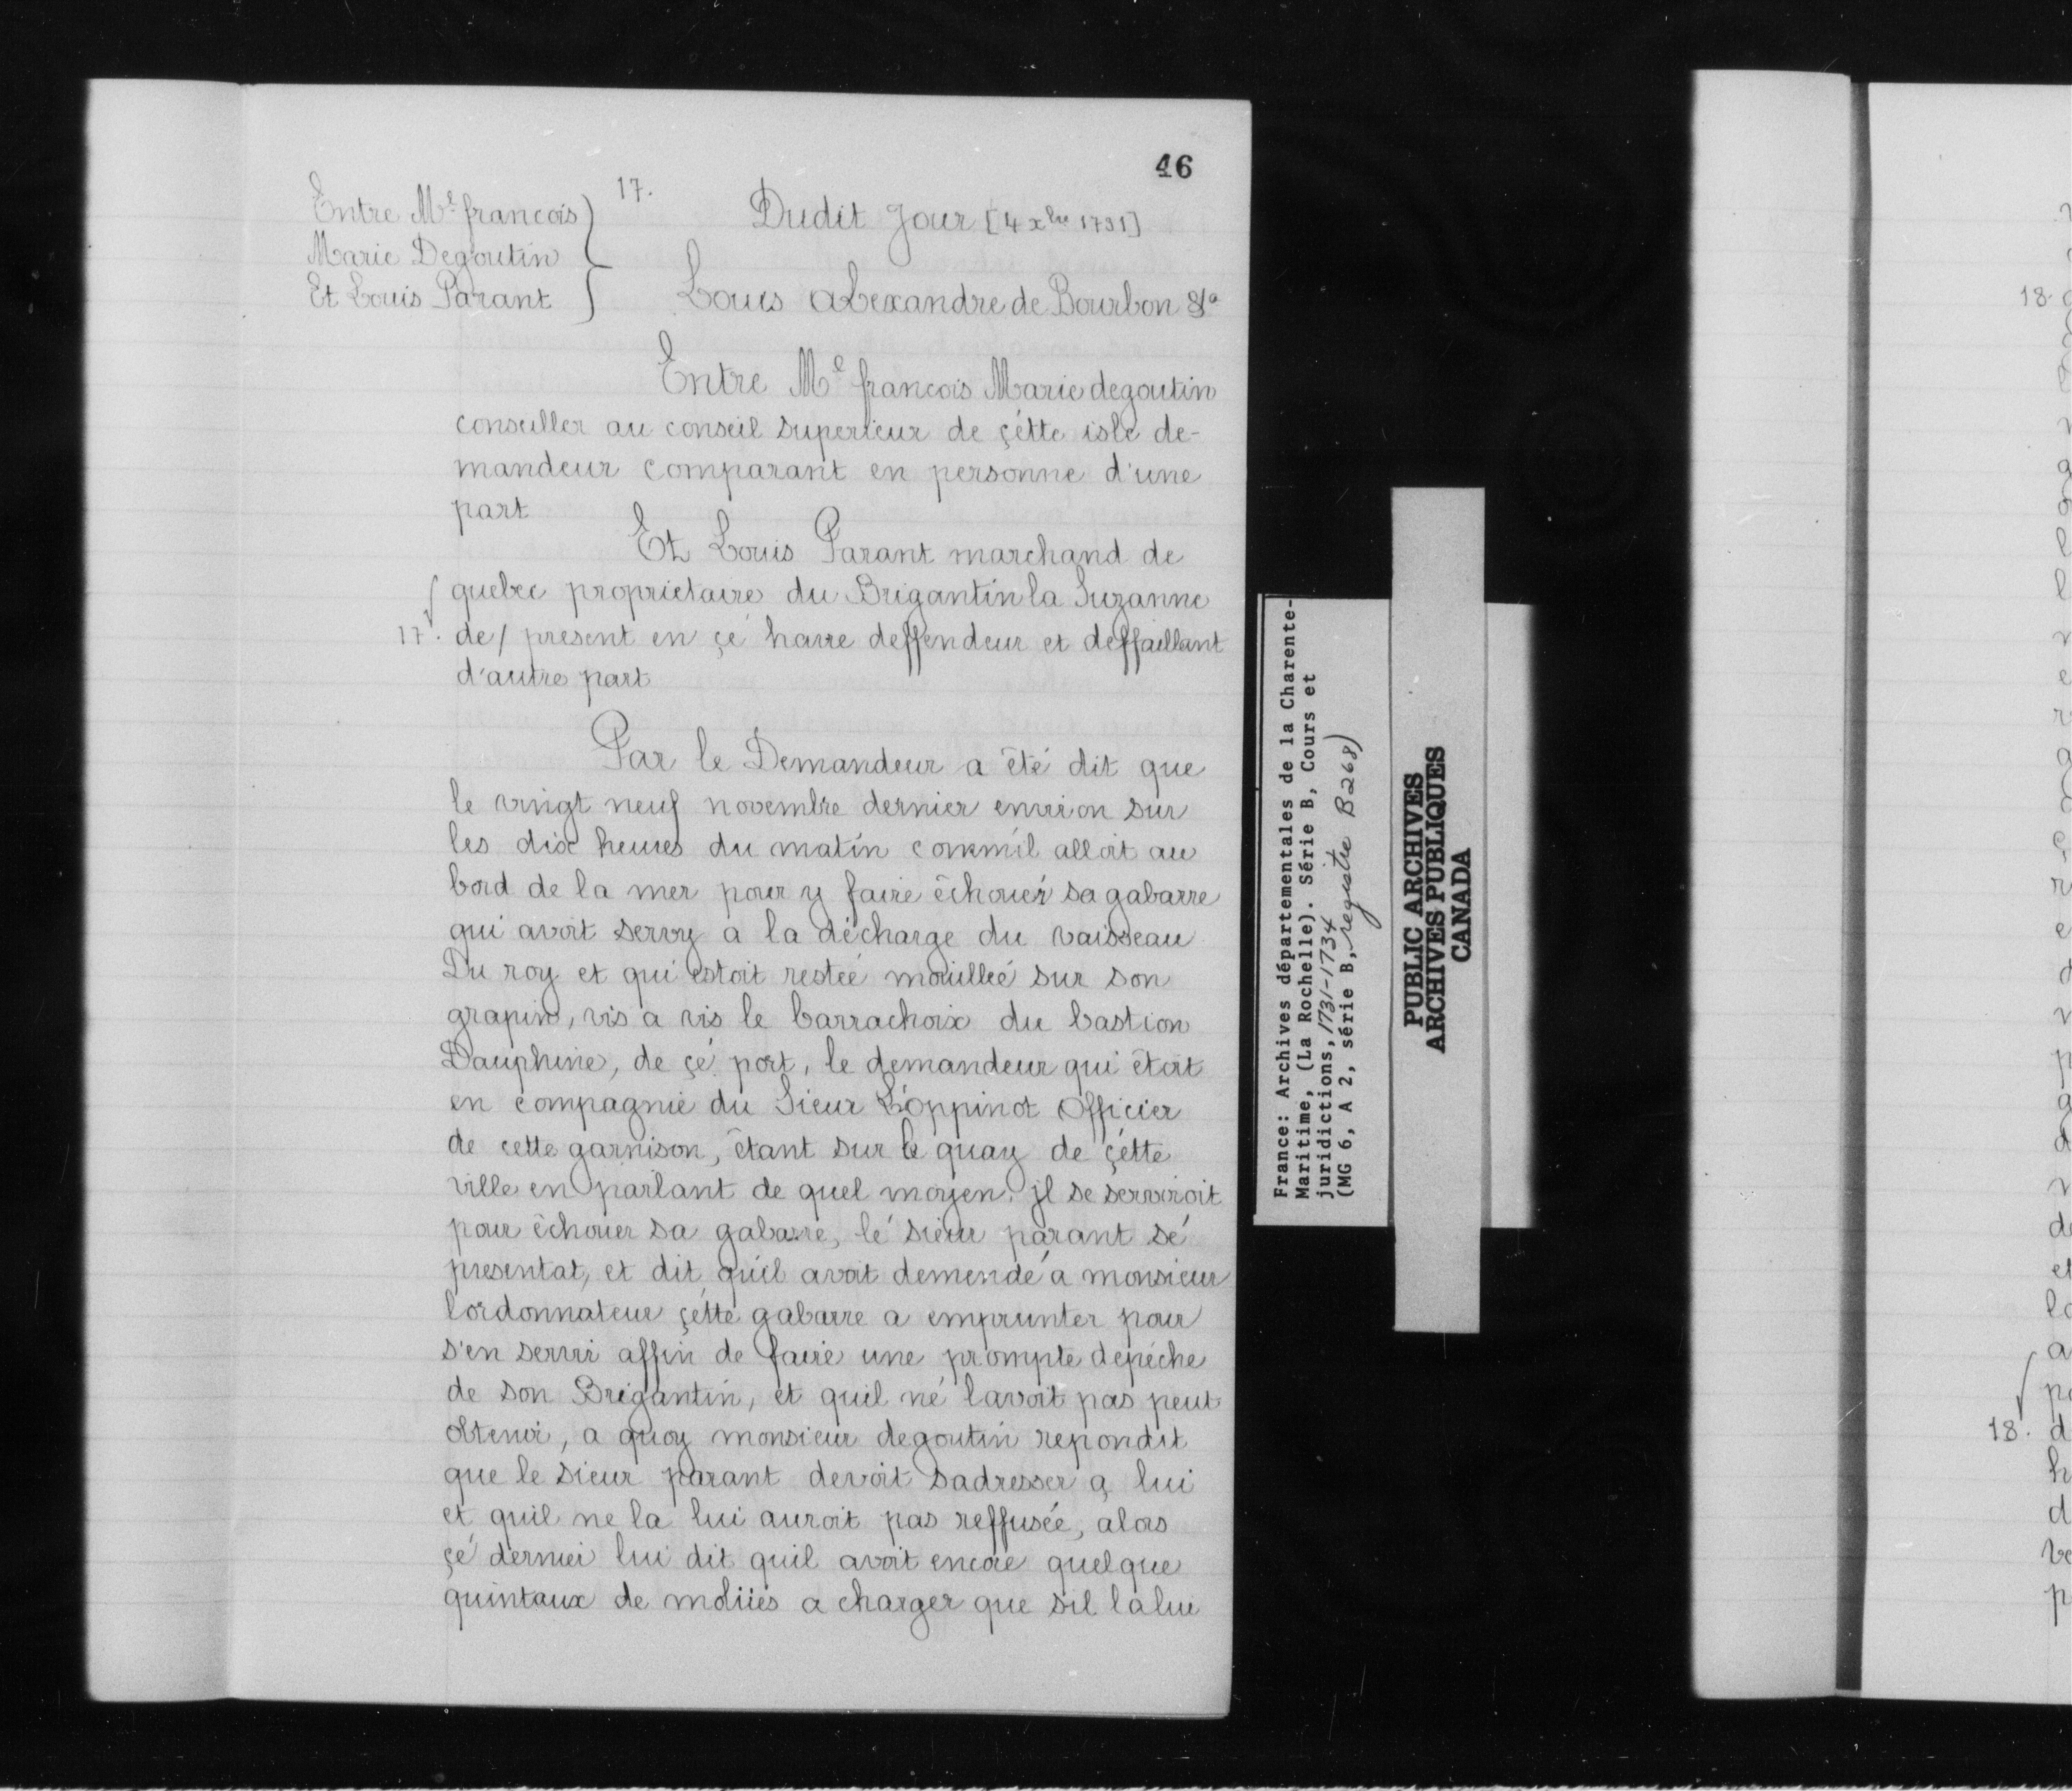 46
17.
Entre Me francois
Marie Degoutin
Et Louis Parant
Dudit Jour [4 xbre 1731]
Louis aLexandre de Bourbon &a
Entre Me francois Marie degoutin
conseiller au conseil superieur de çétte isle de-
mandeur comparant en personne d'une
part
Et Louis Parant marchand de
quebec proprietaire du Brigantin la Suzanne
17. de/ present en çé havre deffendeur et deffaillant
d'autre part
Par le Demandeur a été dit que
le vingt neuf novembre dernier environ sur
les dix heures du matin commil alloit au
bord de la mer pour y faire échouér sa gabarre
qui avoit servy a la décharge du vaisseau
Du roy et qui estoit restéé mouilléé sur son
grapin, vis a vis le barrachoix du bastion
Dauphine, de çé port, le demandeur qui étoit
en compagnie du Sieur Loppinot Officier
de cette garnison, étant sur le quay de çétte
ville en parlant de quel moyen, jl se serviroit
pour échouer sa gabarre, lé sieur parant sé
presentat, et dit quil avoit demendé a monsieur
lordonnateur çétte gabarre a emprunter pour
s'en servir affin de faire une prompte depéche
de son Brigantin, et quil né lavoit pas peut
obtenir, a quoy monsieur degoutin repondit
que le sieur parant devoit sadresser a lui
et quil ne la lui auroit pas reffusée, alors
çé dernier lui dit quil avoit encore quelque
quintaux de moliiés a charger que sil la lui
France: Archives départementales de la Charente-
Maritime, (La Rochelle). Série B, Cours et
juridictions, 1731-1734
(MG 6, A 2, série B, registre B268)
PUBLIC ARCHIVES
ARCHIVES PUBLIQUES
CANADA
18.
18.